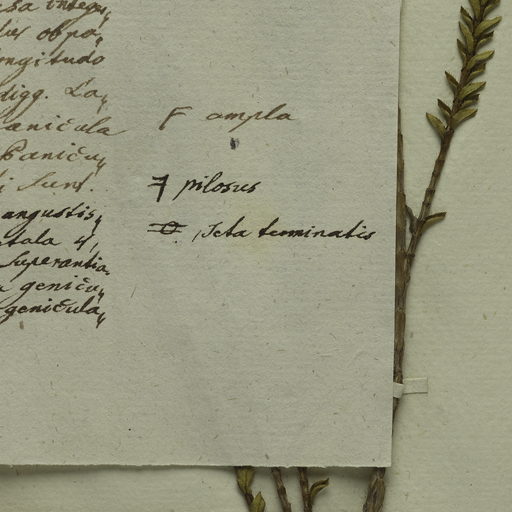 integ„
obva„
ongitudo
digg. La„
anicula
Panicu„
i sunt.
angustis„
tala 4,
superantia„
a genicu„
genicula„
F ampla
7 pilosus
seta terminatis